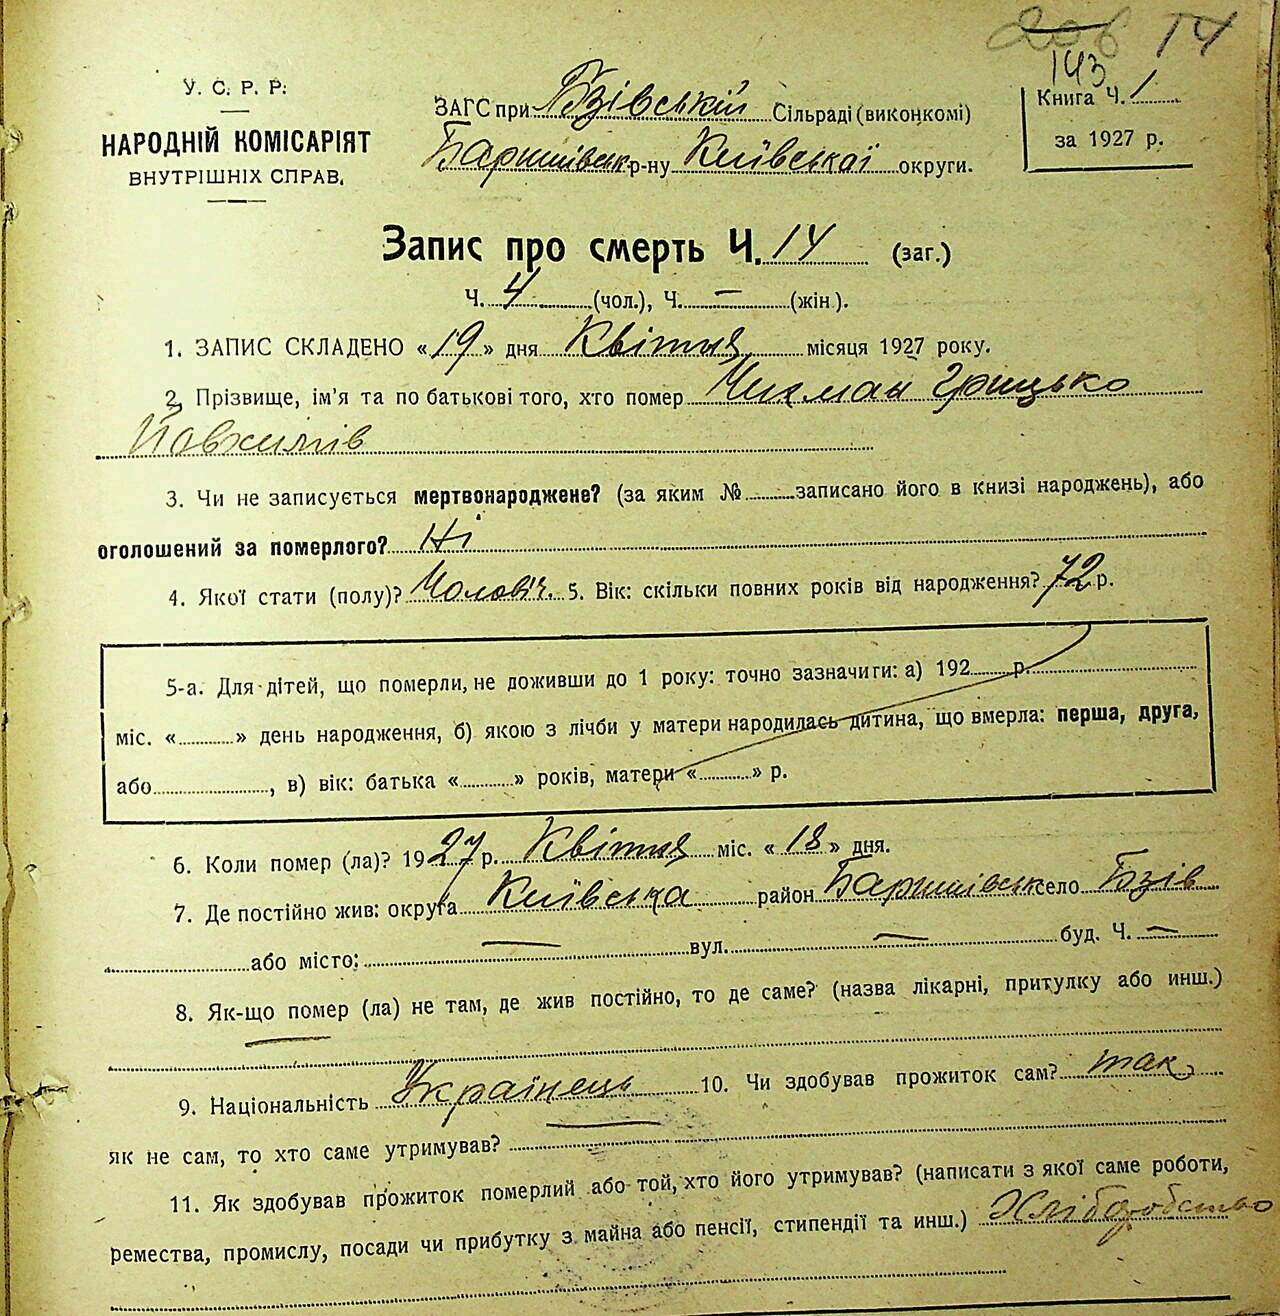 14
143
У. С. Р. Р.
НАРОДНІЙ КОМІСАРІЯТ
ВНУТРІШНІХ СПРАВ.
ЗАГС при Бзівській Сільраді (виконкомі)
Баришівськ. р-ну Київської округи.
Книга Ч. 1
за 1927 р.
Запис про смерть Ч. 14 (заг.)
Ч. 4 (чол.), Ч. — (жін).
1. ЗАПИС СКЛАДЕНО «19» дня Квітня місяця 1927 року.
2. Прізвище, ім'я та по батькові того, хто помер Чихман Грицько
Йовхимів
3. Чи не записується мертвонароджене? (за яким № записано його в книзі народжень), або
оголошений за померлого? Ні
4. Якої стати (полу)? Чоловіч. 5. Вік: скільки повних років від народження? 72 р.
5-а. Для дітей, що померли, не доживши до 1 року: точно зазначити: а) 192 р.
міс. « » день народження, б) якою з лічби у матери народилась дитина, що вмерла: перша, друга,
або , в) вік: батька « » років, матери « » р.
6. Коли помер (ла)? 1927 р. Квітня міс. «18» дня.
7. Де постійно жив: округа Київська район Баришівськ село Бзів
або місто: — вул. — буд. Ч. —
8. Як-що помер (ла) не там, де жив постійно, то де саме? (назва лікарні, притулку або инш.)
—
9. Національність Українець 10. Чи здобував прожиток сам? так
як не сам, то хто саме утримував? —
11. Як здобував прожиток померлий або той, хто його утримував? (написати з якої саме роботи,
ремества, промислу, посади чи прибутку з майна або пенсії, стипендії та инш.) Хліборобство